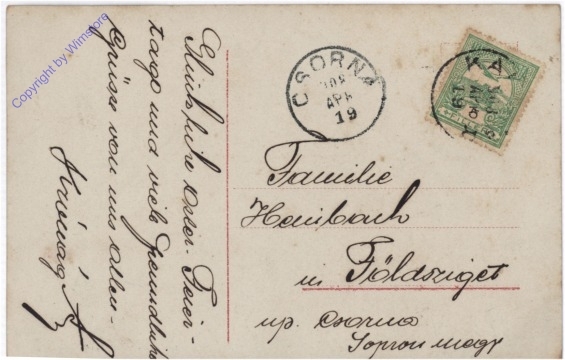 Copyright by Wimstore
Glückliche Oster- Feier-
tage und viele freundliche
Grüsse von uns allen-
CSORNA
908
APR
19
KA
Familie
Hombach
in Földsziget
up. Csorna
Sopron megy